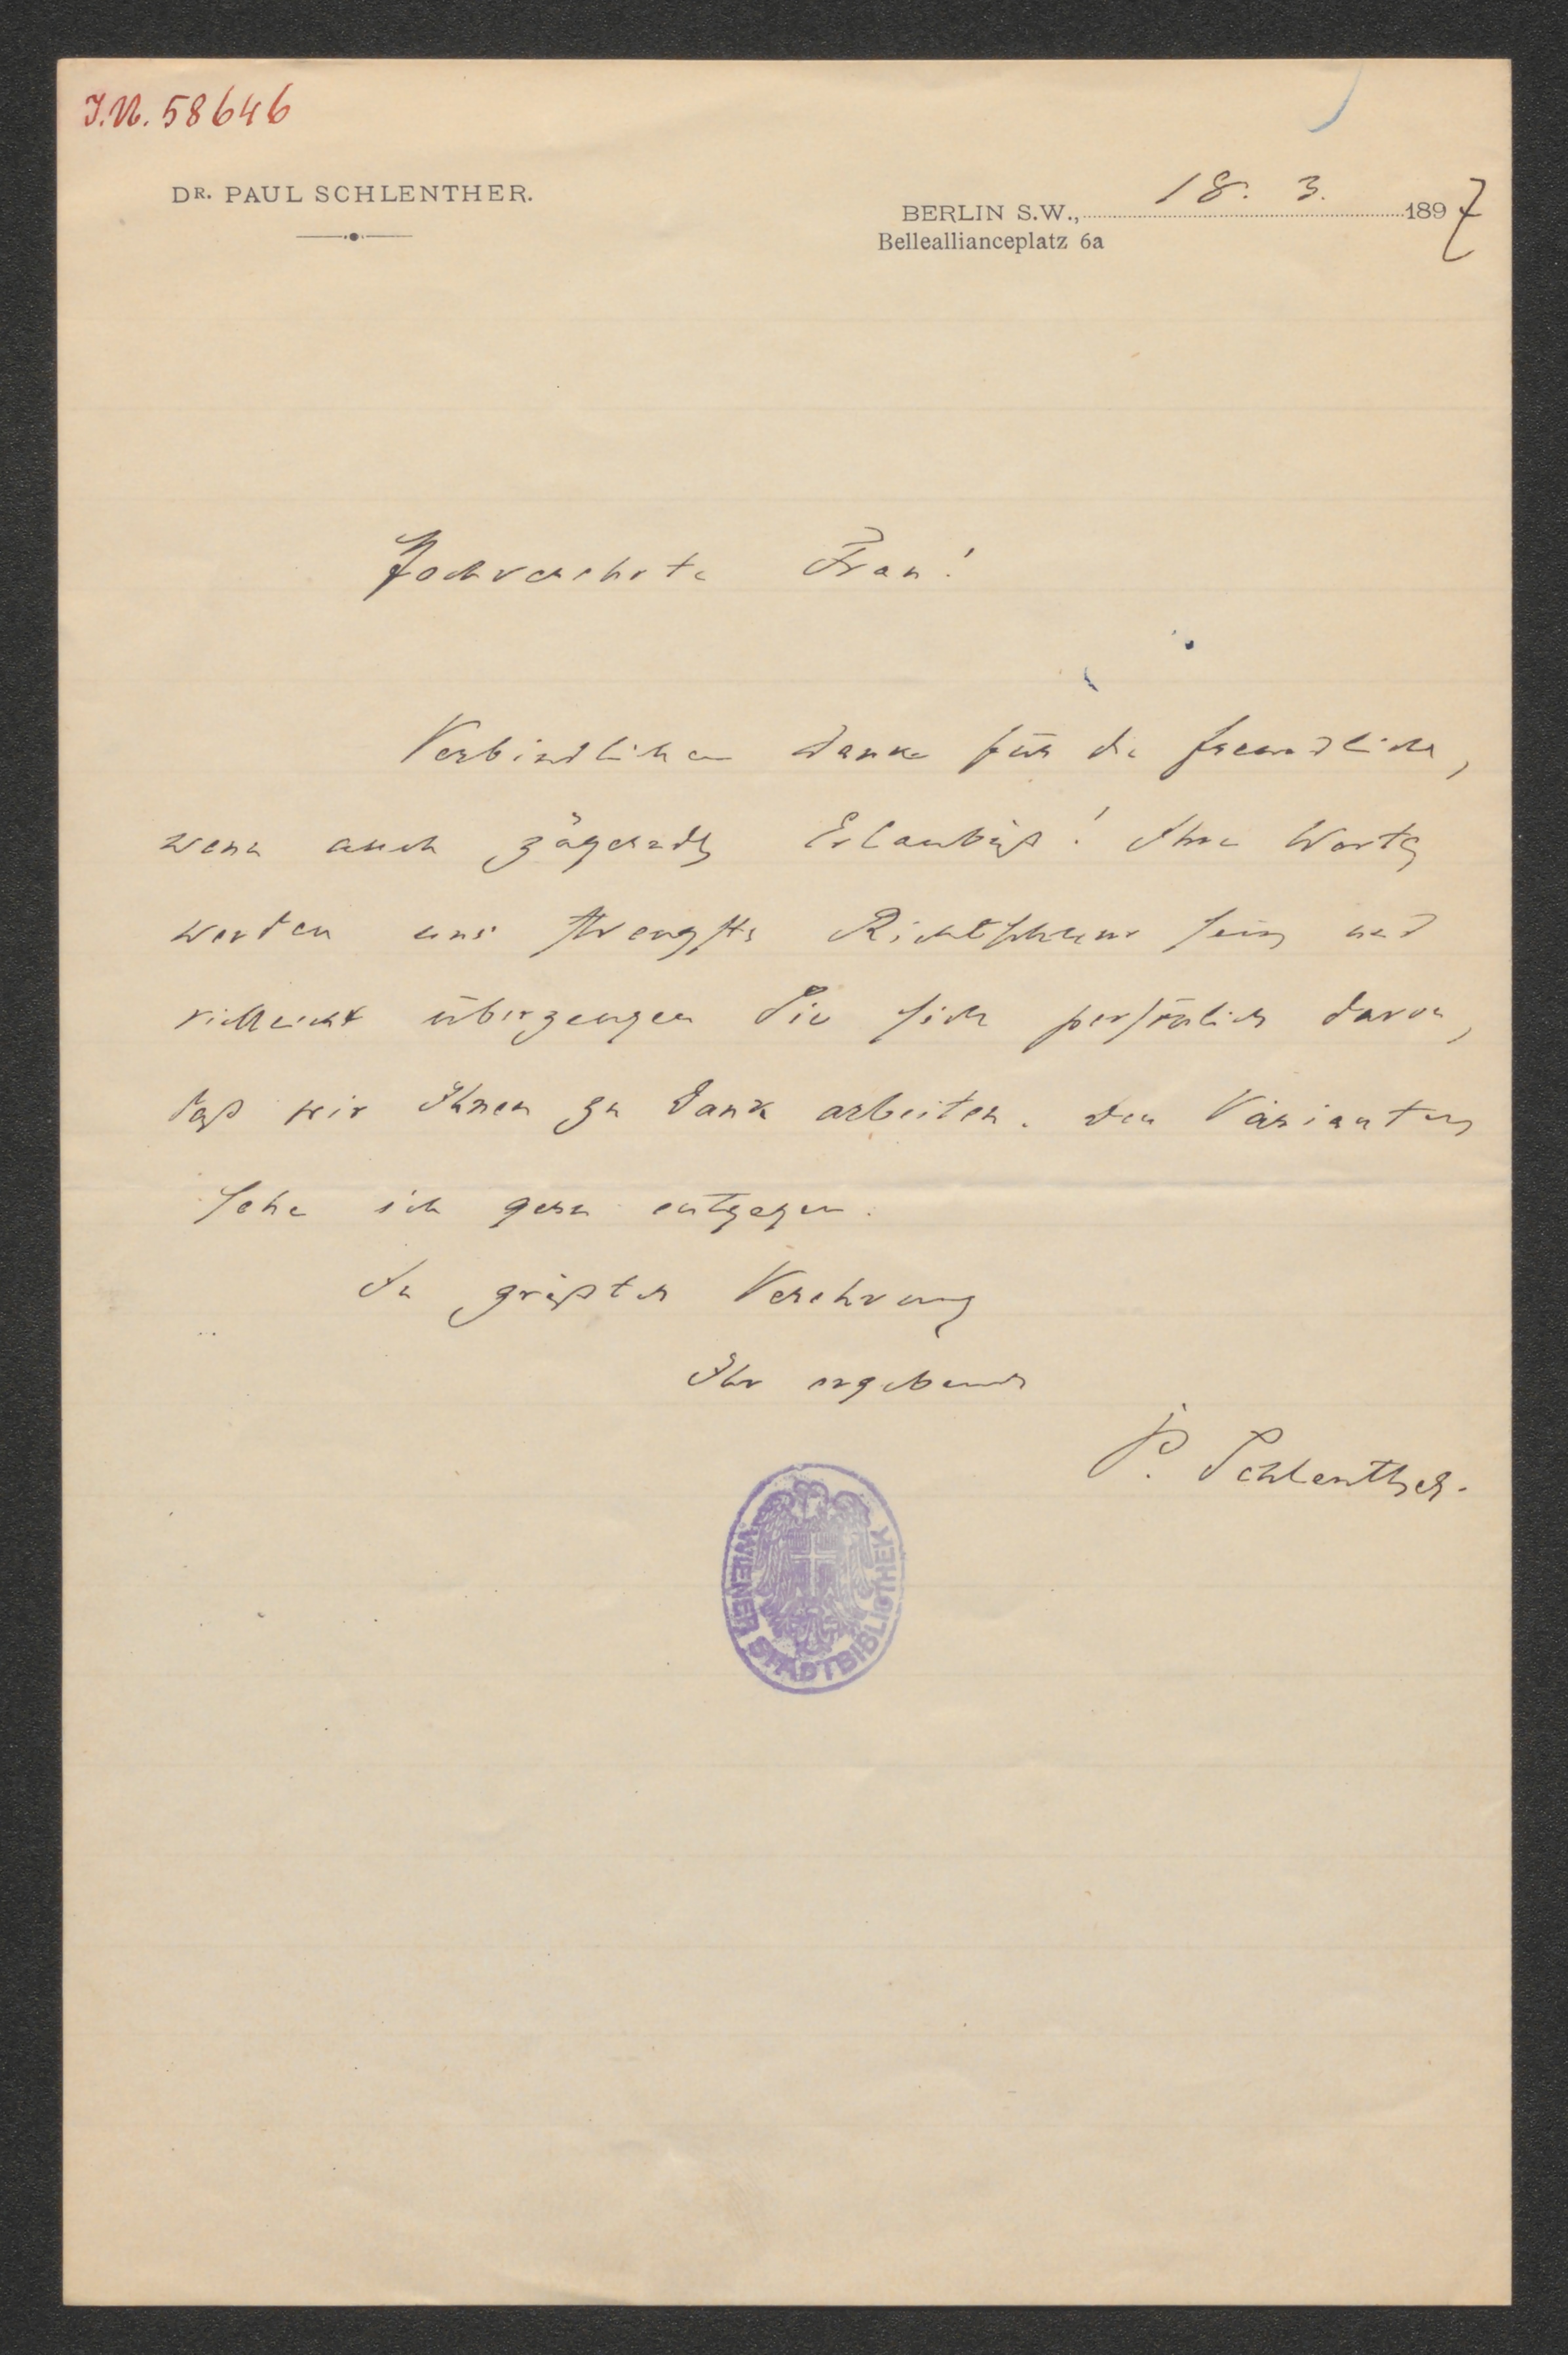 J.N. 58646
DR. PAUL SCHLENTHER.
BERLIN S.W., 18. 3. 1897
Belleallianceplatz 6a
Hochverehrte Frau!
Verbindlichen Dank für die freundliche,
wenn auch zögernde Erlaubniß! Ihre Worte
werden uns strengste Richtschnur sein und
vielleicht überzeugen Sie sich persönlich davon,
daß wir Ihnen zu Dank arbeiten. Den Varianten
sehe ich gern entgegen.
In größter Verehrung
Ihr ergebener
P. Schlenther.
WIENER STADTBIBLIOTHEK